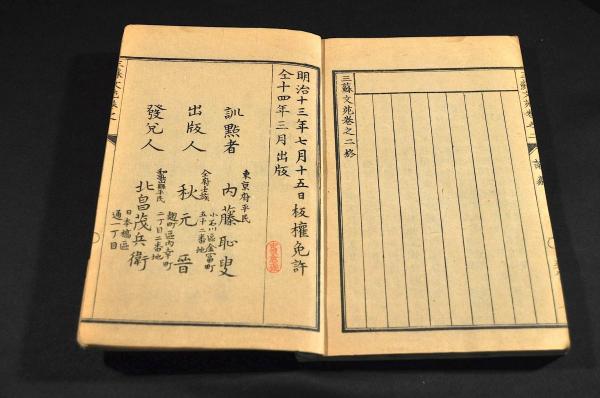 三蘇文苑卷之二
三蘇文苑卷之二終
明治十三年七月十五日板權免許
仝十四年三月出版
訓點者
東京府平民
内藤耻叟
小石川區金富町
五十二番地
出版人
仝府士族
秋元晋
麹町區内幸町
二丁目二番地
發兌人
北畠茂兵衛
日本橋區
通一丁目
三蘇文苑卷之